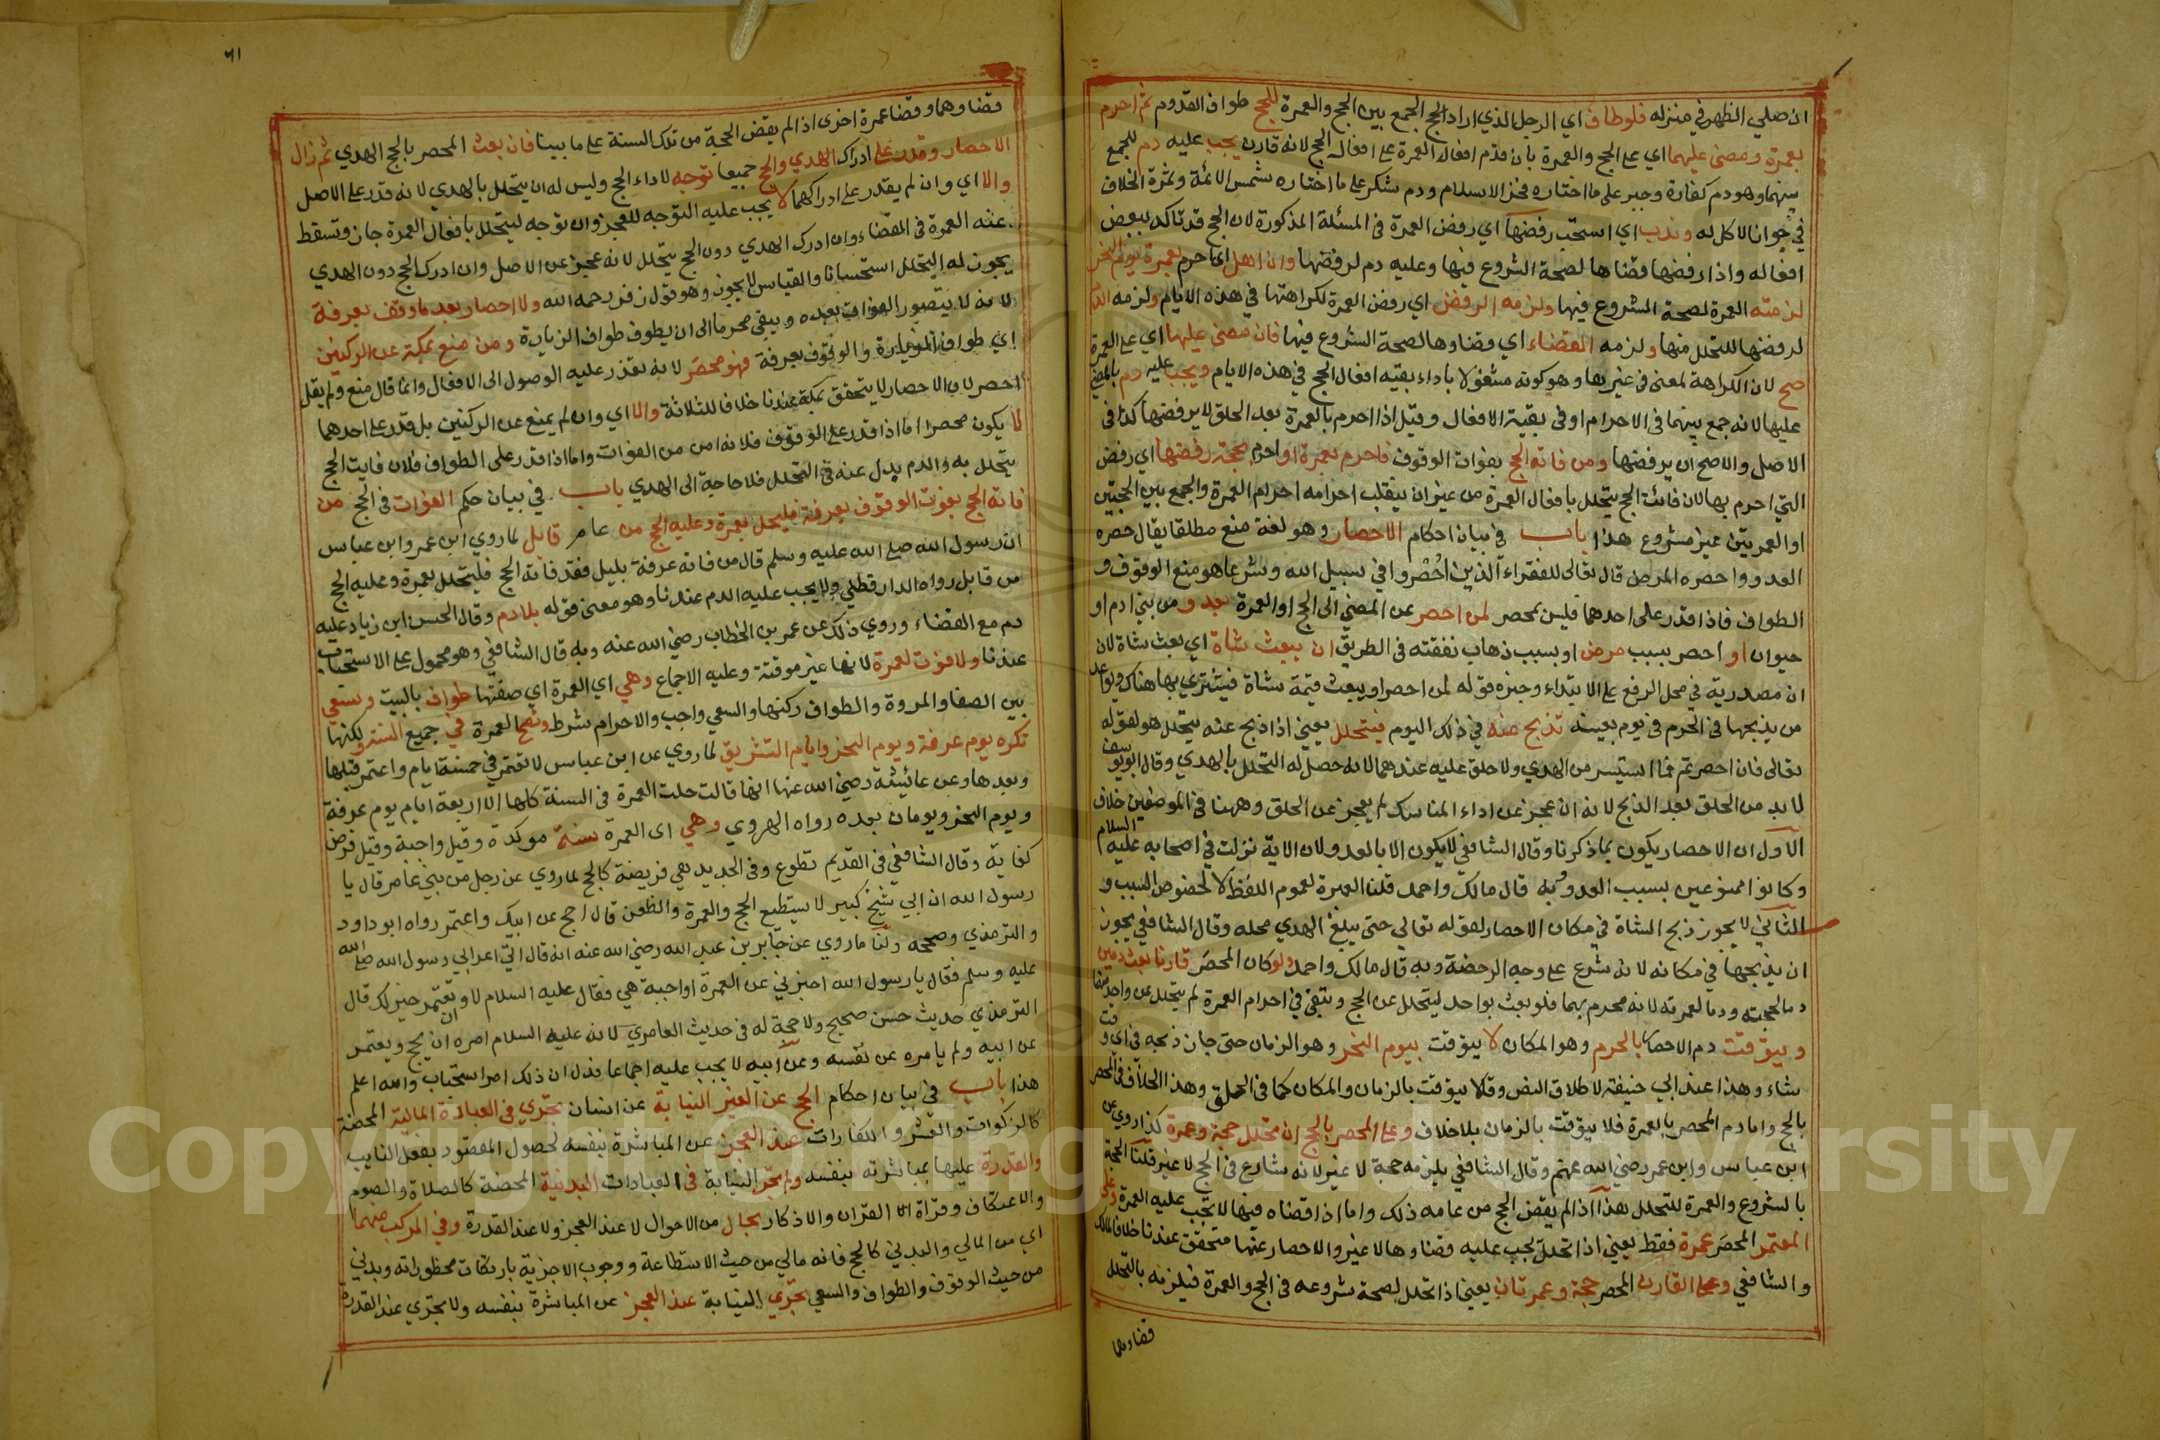 ان صلي الظهر في منزله فلو طاف اي الرجل الذي اراد الحج الجمع بين الحج والعمرة للحج طواف القدوم ثم احرم
بعمرة ومضى عليهما اي على الحج والعمرة بان قدم افعال العمرة على افعال الحج لانه قارن يجب عليه دم للجمع
بينهما وهو دم كفارة وجبر على ما اختاره فخر الاسلام ودم شكر على ما اختاره شمس الائمة وثمرة الخلاف
في جواز الاكل له وندب اي استحب رفضها اي رفض العمرة في المسئلة المذكورة لان الحج قد تاكد ببعض
افعاله واذا رفضها قضاها لصحة الشروع فيها وعليه دم لرفضها وان اهل اي احرم بعمرة يوم النحر
لزمته العمرة لصحة المشروع فيها ولزمه الرفض اي رفض العمرة لكراهتها في هذه الايام ولزمه الدم
لرفضها للتحلل منها ولزمه القضاء اي قضاوها لصحة الشروع فيها فان مضى عليها اي على العمرة
صح لان الكراهة لمعنى في غيرها وهو كونه مشغولا باداء بقيه افعال الحج في هذه الايام ويجب عليه دم بالمضي
عليها لانه جمع بينهما في الاحرام او في بقية الافعال وقيل اذا احرم بالعمرة بعد الحلق لا يرفضها كذا في
الاصل والاصح ان يرفضها ومن فاته الحج بفوات الوقوف فاحرم بعمرة او احرم بحجة رفضها اي رفض
التي احرم بها لان فائت الحج يتحلل بافعال العمرة من غير ان ينقلب احرامه احرام العمرة والجمع بين الحجتين
او العمرتين غير مشروع هذا باب في بيان احكام الاحصار وهو لغة منع مطلقا يقال حصره
العدو واحصره المرض قال تعالى للفقراء الذين احصروا في سبيل الله وشرعا هو منع الوقوف و
الطواف فاذا قدر على احدهما فليس بمحصر لمن احصر عن المضي الى الحج او العمرة بعدو من بني ادم او
حيوان او احصر بسبب مرض او بسبب ذهاب نفقته في الطريق ان يبعث شاة اي بعث شاة لان
ان مصدرية في محل الرفع على الابتداء وخبره قوله لمن احصر او يبعث قيمة شاة فيشتري بها هناك ويواعد
من يذبحها في الحرم في يوم بعينه تذبح عنه في ذلك اليوم فيتحلل يعني اذا ذبح عنه يتحلل هو لقوله
تعالى فان احصرتم فما استيسر من الهدي ولا حلق عليه عندهما لانه حصل له التحلل بالهدي وقال ابو يوسف
لا بد من الحلق بعد الذبح لانه ان عجز عن اداء المناسك لم يعجز عن الحلق وههنا في الموضعين خلاف
الاول ان الاحصار يكون بما ذكرنا وقال الشافعي لا يكون الا بالعدو لان الاية نزلت في اصحابه عليه السلام
وكانوا ممنوعين بسبب العدو وبه قال مالك واحمد قلنا العبرة لعموم اللفظ لا لخصوص السبب و
الثاني لا يجوز ذبح الشاة في مكان الاحصار لقوله تعالى حتى يبلغ الهدي محله وقال الشافعي يجوز
ان يذبحها في مكانه لانه شرع على وجه الرخصة وبه قال مالك واحمد ولو كان المحصر قارنا بعث دمين
دما لحجته ودما لعمرته لانه محرم بهما فلو بعث بواحد ليتحلل عن الحج ويبقى في احرام العمرة لم يتحلل عن واحد منهما
ويتوقت دم الاحصار بالحرم وهو المكان لا يتوقت بيوم النحر وهو الزمان حتى جاز ذبحه في اي وقت
شاء وهذا عند ابي حنيفة لاطلاق النص وقالا يتوقت بالزمان والمكان كما في الحلق وهذا الخلاف في المحصر
بالحج واما دم المحصر بالعمرة فلا يتوقت بالزمان بلا خلاف وعلى المحصر بالحج ان تحلل حجة وعمرة كذا روي عن
ابن عباس وابن عمر رضي الله عنهم وقال الشافعي يلزمه حجة لا غير لانه شارع في الحج لا غير قلنا الحجة
بالشروع والعمرة للتحلل هذا اذا لم يقض الحج من عامه ذلك واما اذا قضاه فيها لا تجب عليه العمرة وعلى
المعتمر المحصر عمرة فقط يعني اذا تحلل يجب عليه قضاوها لا غير والاحصار عنها متحقق عندنا خلافا لمالك
والشافعي وعلى القارن المحصر حجة وعمرتان يعني اذا تحلل لصحة شروعه في الحج والعمرة فيلزمه بالتحلل
قضاوهما
٦١
قضاوهما وقضا عمرة اخرى اذا لم يقض الحجة من تلك السنة على ما بينا فان بعث المحصر بالحج الهدي ثم زال
الاحصار وقدر على ادراك الهدي والحج جميعا توجه لاداء الحج وليس له ان يتحلل بالهدي لانه قدر على الاصل
والا اي وان لم يقدر على ادراكهما لا يجب عليه التوجه للعجز وان توجه ليتحلل بافعال العمرة جاز وتسقط
عنه العمرة في القضاء وان ادرك الهدي دون الحج يتحلل لانه عجز عن الاصل وان ادرك الحج دون الهدي
يجوز له التحلل استحسانا والقياس لا يجوز وهو قول زفر رحمه الله ولا احصار بعد ما وقف بعرفة
لانه لا يتصور الفوات بعده ويبقى محرما الى ان يطوف طواف الزيارة ومن منع بمكة عن الركنين
اي طواف الزيارة والوقوف بعرفة فهو محصر لانه تعذر عليه الوصول الى الافعال وانما قال منع ولم يقل
احصر لان الاحصار لا يتحقق بمكة عندنا خلافا للثلاثة والا اي وان لم يمنع عن الركنين بل قدر على احدهما
لا يكون محصرا اما اذا قدر على الوقوف فلانه امن من الفوات واما اذا قدر على الطواف فلان فايت الحج
يتحلل به والدم بدل عنه في التحلل فلا حاجة الى الهدي باب في بيان حكم الفوات في الحج من
فاته الحج بفوت الوقوف بعرفة فليحل بعمرة وعليه الحج من عام قابل لما روي ابن عمر وابن عباس
ان رسول الله صلى الله عليه وسلم قال من فاته عرفة بليل فقد فاته الحج فليتحلل بعمرة وعليه الحج
من قابل رواه الدارقطني ولا يجب عليه الدم عندنا وهو معنى قوله بلا دم وقال الحسن ابن زياد عليه
دم مع القضاء وروي ذلك عن عمر بن الخطاب رضي الله عنه وبه قال الشافعي وهو محمول على الاستحباب
عندنا ولا فوت لعمرة لانها غير موقتة وعليه الاجماع وهي اي العمرة اي صفتها طواف بالبيت وسعي
بين الصفا والمروة والطواف ركنها والسعي واجب والاحرام شرط وتصح العمرة في جميع السنة ولكنها
تكره يوم عرفة ويوم النحر وايام التشريق لما روي عن ابن عباس لا تعتمر في خمسة ايام واعتمر قبلها
وبعدها وعن عائشة رضي الله عنها انها قالت حلت العمرة في السنة كلها الا اربعة ايام يوم عرفة
ويوم النحر ويومان بعده رواه الهروي وهي اي العمرة سنة موكدة وقيل واجبة وقيل فرض
كفاية وقال الشافعي في القديم تطوع وفي الجديد هي فريضة كالحج لما روي عن رجل من بني عامر قال يا
رسول الله ان ابي شيخ كبير لا يستطيع الحج والعمرة والظعن قال احج عن ابيك واعتمر رواه ابو داود
والترمذي وصححه ولنا ما روي عن جابر بن عبد الله رضي الله عنه انه قال اتى اعرابي رسول الله صلى الله
عليه وسلم فقال يا رسول الله اخبرني عن العمرة اواجبة هي فقال عليه السلام لا وان تعتمر خير لك قال
الترمذي حديث حسن صحيح ولا حجة له في حديث العامري لانه عليه السلام امره ان يحج ويعتمر
عن ابيه ولم يامره عن نفسه وعن ابيه لا يجب عليه اجماعا فدل ان ذلك امر استحباب والله اعلم
هذا باب في بيان احكام الحج عن الغير النيابة عن انسان تجزي في العبادة المالية المحضة
كالزكوات والعشر والكفارات عند العجز عن المباشرة بنفسه لحصول المقصود بفعل النايب
والقدرة عليها بمباشرته بنفسه ولم تجز النيابة في العبادات البدنية المحضة كالصلاة والصوم
والاعتكاف وقراة القران والاذكار بحال من الاحوال لا عند العجز ولا عند القدرة وفي المركب منهما
اي من المالي والبدني كالحج فانه مالي من حيث الاستطاعة ووجوب الاجزية بارتكاب محظوراته وبدني
من حيث الوقوف والطواف والسعي تجزي النيابة عند العجز عن المباشرة بنفسه ولا تجزي عند القدرة
Copyright © King Saud University